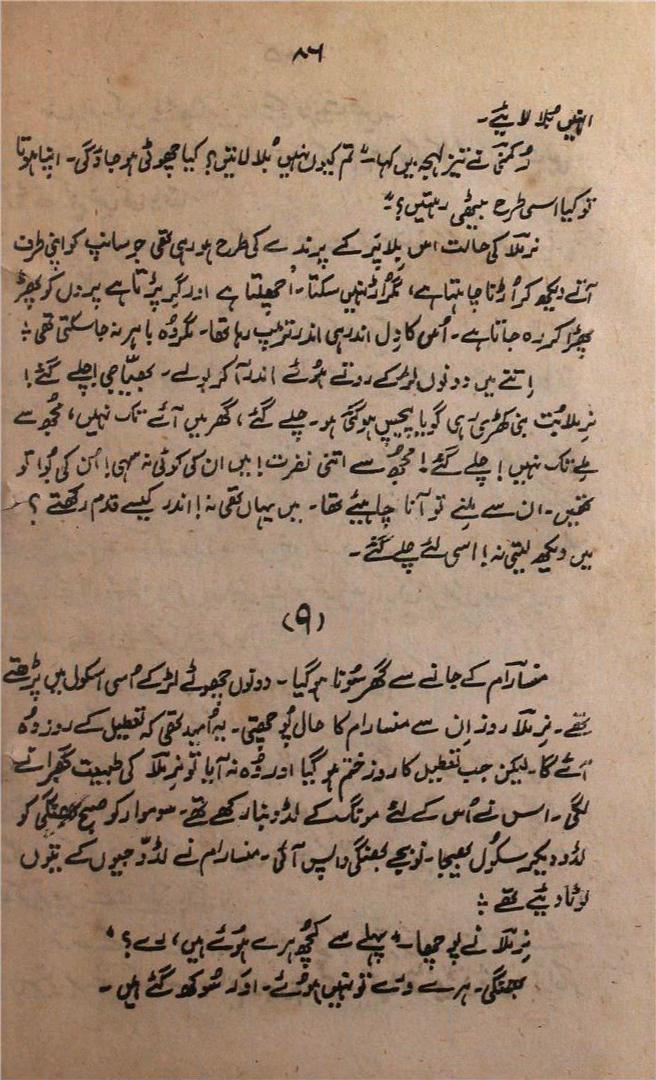 ۸۶
انہیں بُلا لایئے۔
رُکمنی نے تیز لہجہ میں کہا۔" تم کیوں نہیں بُلا لاتیں؟ کیا چھوٹی ہو جاؤ گی۔ اپنا ہوتا
تو کیا اسی طرح بیٹھی رہتیں؟"
نرملا کی حالت اس بِلا پَر کے پرندے کی طرح ہو رہی تھی جو سانپ کو اپنی طرف
آتے دیکھ کر اُڑنا چاہتا ہے، مگر اُڑ نہیں سکتا۔ اُچھلتا ہے اور گِر پڑتا ہے پروں کو پھڑ
پھڑا کر رہ جاتا ہے۔ اُس کا دِل اندر ہی اندر تڑپ رہا تھا۔ مگر وُہ باہر نہ جا سکتی تھی ؛
اِتنے میں دونوں لڑکے روتے ہُوئے اندر آ کر بولے۔ بھیّا جی چلے گئے!
نرملا بُت بنی کھڑی رہی گویا بے حِس ہو گئی ہو۔ چلے گئے، گھر میں آئے تک نہیں، مجُھ سے
مِلے تک نہیں! چلے گئے! مجُھ سے اتنی نفرت! میں ان کی کوئی نہ سہی! اُن کی بُوا تو
تھیں۔ ان سے مِلنے تو آنا چاہیئے تھا۔ میں یہاں تھی نہ! اندر کیسے قدم رکھتے؟
میں دیکھ لیتی نہ! اسی لئے چلے گئے۔
(۹)
منسارام کے جانے سے گھر سُونا ہو گیا۔ دونوں چھوٹے لڑکے اُسی اسکول میں پڑھتے
تھے۔ نِرملا روز اِن سے منسا رام کا حال پُوچھتی۔ یہ اُمید تھی کہ تعطیل کے روز وُہ
آئے گا۔ لیکن جب تعطیل کا روز ختم ہو گیا اور وُہ نہ آیا تو نِرملا کی طبیعت گھبرانے
لگی۔ اس نے اُس کے لئے مونگ کے لڈو تیار رکھے تھے۔ سوموار کو صبح بھنگی کو
لڈو دیکر سکُول بھیجا۔ نو بجے بھنگی واپس آئی۔ منسارام نے لڈوّ جیوں کے تیوں
لوٹا دیئے تھے ؛
نِرملا نے پوچھا۔" پہلے سے کچُھ ہرے ہوئے ہیں، رے؟"
بھنگی۔ ہرے ورے تو نہیں ہوُئے۔ اور سُوکھ گئے ہیں۔